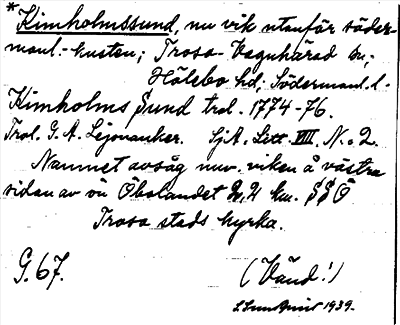 *Kimholmssund, nu vik utanför söder-
manl.-kusten; Trosa-Vagnhärad sn;
Hölebo hd; Södermanl. l.
Kimholms Sund trol. 1774-76.
Trol. G. A. Leijonanker. SjA. Litt. VIII. N:o 2.
Namnet avsåg nuv. viken å västra
sidan av ön Öbolandet 2,2 km. SSO
Trosa stads kyrka.
G. 67. (Vänd!)
1939.